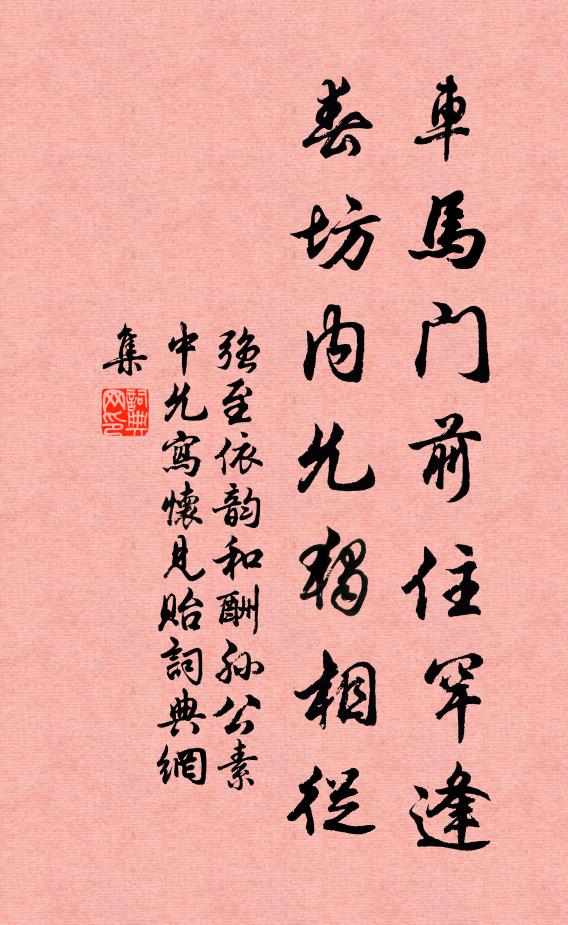 車馬門前住罕逢
春坊内允獨相從
強至依韵和酬孙公素
中允寫懷見貽詞典網
集
詞典網印